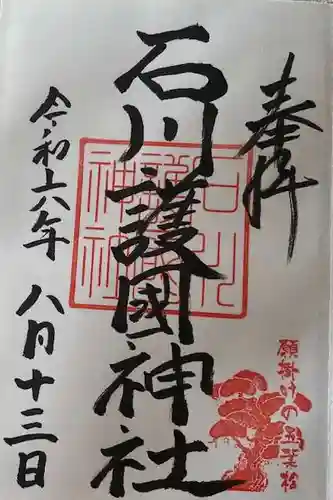 奉拝
石川護國神社
令和六年
八月十三日
石川護國神社
願掛けの五葉松